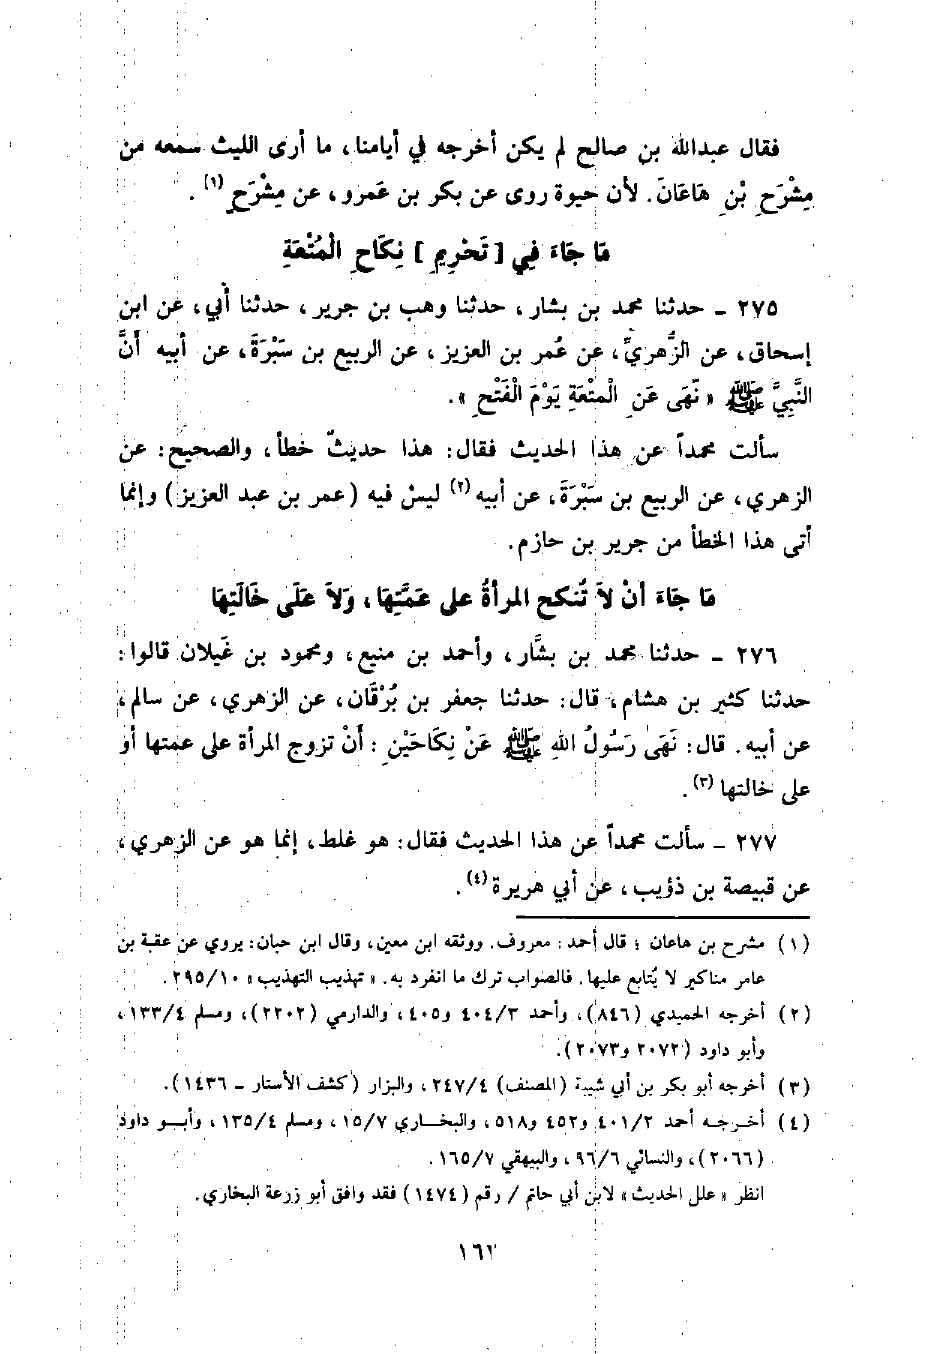 فقال عبدالله بن صالح لم يكن أخرجه في أيامنا، ما أرى الليث سمعه من
مِشْرَحِ بْنِ هَاعَانَ. لأن حيوة روى عن بكر بن عَمرو، عن مِشْرَحٍ (١).
مَا جَاءَ فِي [ تَحْرِيمِ ] نِكَاحِ الْمُتْعَةِ
٢٧٥ ـ حدثنا محمد بن بشار، حدثنا وهب بن جرير، حدثنا أبي، عن ابن
إسحاق، عن الزُّهريِّ، عن عُمر بن العزيز، عن الربيع بن سَبْرَةَ، عن أبيه أَنَّ
النَّبِيَّ ﷺ « نَهَى عَنِ الْمتْعَةِ يَوْمَ الْفَتْحِ ».
سألت محمداً عن هذا الحديث فقال: هذا حديثٌ خطأ، والصحيح: عن
الزهري، عن الربيع بن سَبْرَةَ، عن أبيه (٢) ليسْ فيه (عمر بن عبد العزيز) وإنما
أتى هذا الخطأ من جرير بن حازم.
مَا جَاءَ أنْ لاَ تُنكح المرأةُ على عَمَّتِهَا، وَلاَ عَلَى خَالَتِهَا
٢٧٦ ـ حدثنا محمد بن بشَّار، وأحمد بن منيع، ومحمود بن غَيلان قالوا:
حدثنا كثير بن هشام، قال: حدثنا جعفر بن بُرْقَان، عن الزهري، عن سالم،
عن أبيه. قال: نَهَى رَسُولُ اللهِ ﷺ عَنْ نِكَاحَيْنِ: أَنْ تزوج المرأة على عمتها أو
على خالتها (٣).
٢٧٧ ـ سألت محمداً عن هذا الحديث فقال: هو غلط، إنما هو عن الزهري،
عن قبيصة بن ذؤيب، عن أبي هريرة (٤).
(١) مشرح بن هاعان ؛ قال أحمد: معروف. ووثقه ابن معين، وقال ابن حبان: يروي عن عقبة بن
عامر مناكير لا يُتابع عليها. فالصواب ترك ما انفرد به. « تهذيب التهذيب » ٢٩٥/١٠.
(٢) أخرجه الحميدي (٨٤٦)، وأحمد ٤٠٤/٣ و٤٠٥، والدارمي (٢٢٠٢)، ومسلم ١٣٣/٤،
وأبو داود (٢٠٧٢ و٢٠٧٣).
(٣) أخرجه أبو بكر بن أبي شيبة (المصنف) ٢٤٧/٤، والبزار (كشف الأستار ـ ١٤٣٦).
(٤) أخرجه أحمد ٤٠١/٢ و٤٥٢ و٥١٨، والبخاري ١٥/٧، ومسلم ١٣٥/٤، وأبو داود
(٢٠٦٦)، والنسائي ٩٦/٦، والبيهقي ١٦٥/٧.
انظر « علل الحديث » لابن أبي حاتم / رقم (١٤٧٤) فقد وافق أبو زرعة البخاري.
١٦٢